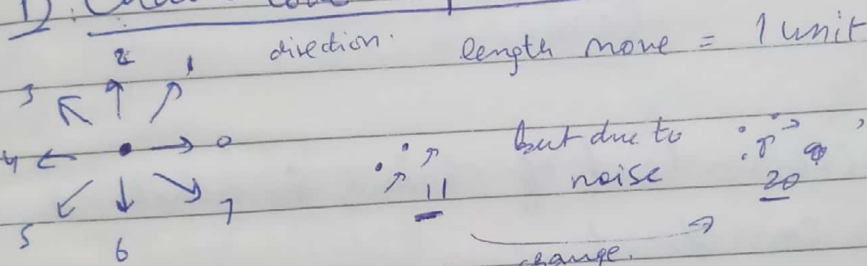 1).
direction. length move = 1 unit
3 2 1
4 0
but due to
noise
11 20
5 6 7
change.